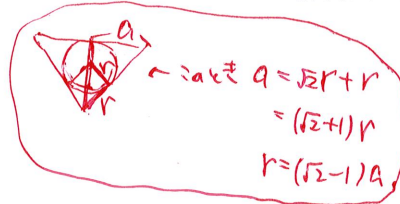 a
r
r
このとき a = √2r + r
= (√2+1) r
r = (√2-1) a